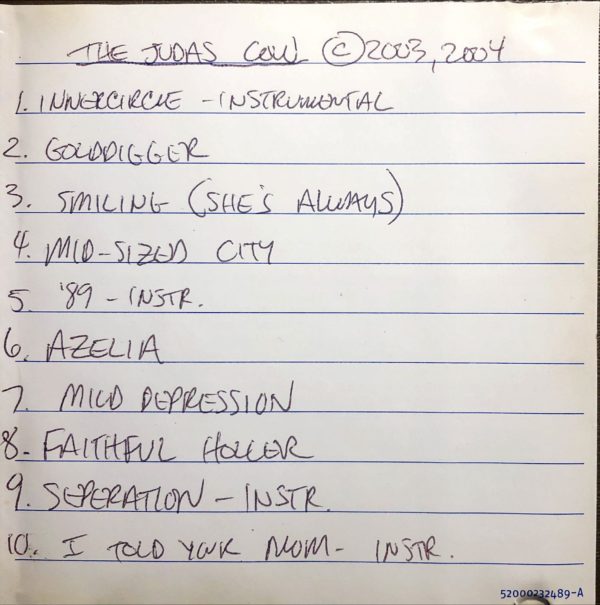 THE JUDAS COW © 2003, 2004
1. INNERCIRCLE - INSTRUMENTAL
2. GOLDDIGGER
3. SMILING (SHE'S ALWAYS)
4. MID-SIZED CITY
5. '89 - INSTR.
6. AZELIA
7. MILD DEPRESSION
8- FAITHFUL HOLLER
9. SEPERATION - INSTR.
10. I TOLD YOUR MOM - INSTR.
52000232489-A